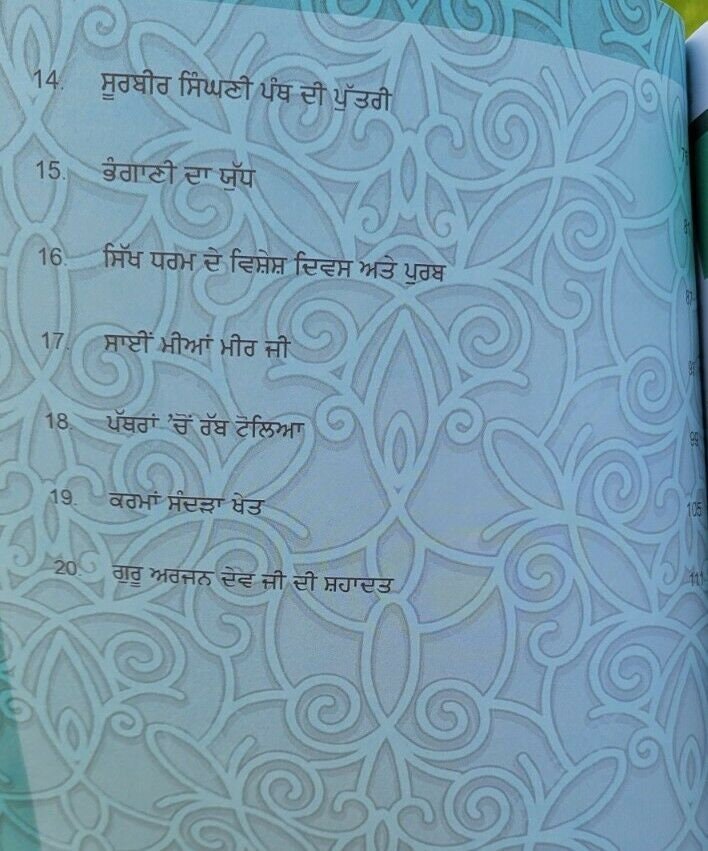 14. ਸੂਰਬੀਰ ਸਿੰਘਣੀ ਪੰਥ ਦੀ ਪੁੱਤਰੀ
15. ਭੰਗਾਣੀ ਦਾ ਯੁੱਧ
16. ਸਿੱਖ ਧਰਮ ਦੇ ਵਿਸ਼ੇਸ਼ ਦਿਵਸ ਅਤੇ ਪੁਰਬ
17. ਸਾਈਂ ਮੀਆਂ ਮੀਰ ਜੀ
18. ਪੱਥਰਾਂ 'ਚੋਂ ਰੱਬ ਟੋਲਿਆ
19. ਕਰਮਾਂ ਸੰਦੜਾ ਖੇਤ 105
20. ਗੁਰੂ ਅਰਜਨ ਦੇਵ ਜੀ ਦੀ ਸ਼ਹਾਦਤ 111